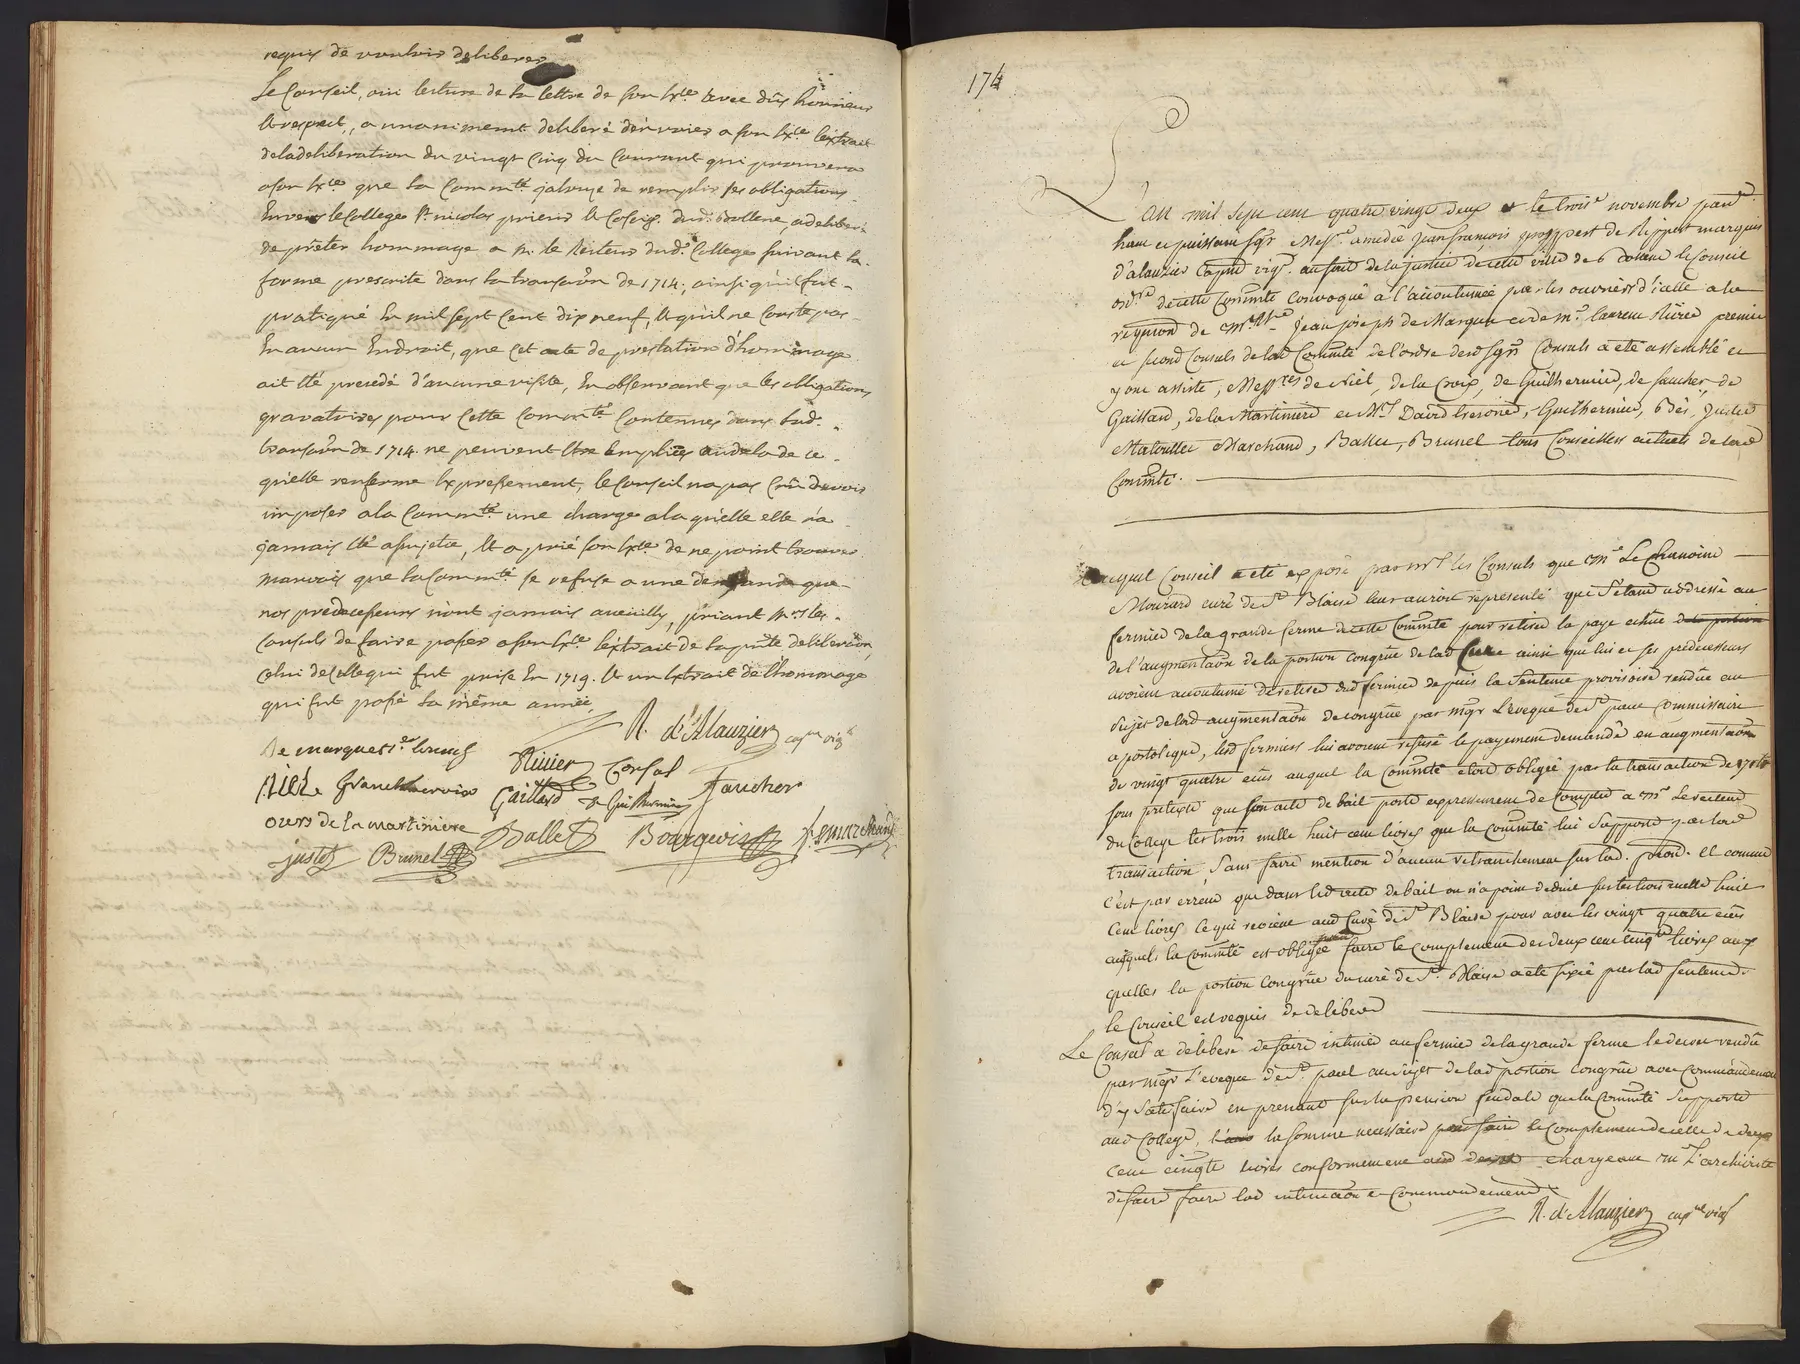 requis de vouloir deliberer
Le Conseil, oui lecture de la lettre de son Exce. avec dûs honneur
& respect, a unanimemt. deliberé d'envoier a son Exce. l'extrait
de la deliberation du vingt cinq du Courant qui prouvera
a son Exce. que la Commté. jalouse de remplir ses obligations
Envers le College St. nicolas prieur & Coseigr. dud. Bollene, a deliberé
de prêter hommage a M. le Recteur dudt. College suivant la
forme prescrite dans la transaôn de 1714, ainsi qu'il fut
pratiqué En mil sept cent dix neuf, & qu'il ne Conste pas
En aucun Endroit, que cet acte de prestation d'hommage
ait été precedé d'aucune visite, En observant que les obligations
gravatoires pour cette Commté. Contenues dans lad.
transaôn de 1714. ne peuvent être Empliées audela de ce
qu'elle renferme Expressement, le Conseil n'a pas Crû devoir
imposer a la Commté. une charge a la qu'elle elle n'a
jamais été assujetie, & a prié son Exce. de ne point trouver
mauvais que la Commté. se refuse a une demande que
nos predecesseurs n'ont jamais accuilly, priant Mrs les
Consuls de faire passer a son Exce. l'extrait de la pnte deliberaôn,
Celui de Celle qui fut prise En 1719. & un Extrait de l'hommage
qui fut passé la même année
R. d'Alauzier capne vigr.
De marquet 1er. Consul Rivier Consul
Niel Granet Lacroix Gaillard de Guilhermier Faucher
Ours de la martiniere Ballet Bourgeois marchand
juste Brunel
174
L'an mil sept cent quatre vingt deux et le troise. novembre pardt.
haut et puissant sgr Messre. amedée jean françois prosper de Rippert marquis
d'alauzier Capne vigr. au fait de la justice de cette ville de Bollene le Conseil
ordre de cette Commté Convoqué à l'accoutumée par les ouvriers d'icelle a la
reqsition de Mre. Jean joseph de Marquet et de Mr. laurent Rivier premier
et second Consuls de lad Commté de l'ordre desd sgrs Consuls a eté assemblé et
y ont assisté, Messres de Niel, de la Croix, de Guilhermier, de faucher, de
Gaillard, de la Martiniere et Mrs David Guilhermier, Bès, Juste
Marchand, Ballet, Brunel tous Conseillers actuels de lad
Commté.
Auquel Conseil a eté exposé par Mrs. les Consuls que Mre Le Chanoine
Mourard curé de St. Blaise leur auroit representé que s'etant addressé au
fermier de la grande ferme de cette Commté pour retirer la paye echüe de la portion
de l'augmentaôn de la portion Congrüe de lad Cure ainsi que lui et ses predecesseurs
avoient accoutumé de retirer dud fermier depuis la Sentence provisoire rendüe au
sujet de lad augmentaôn de congrüe par Mgr L'eveque de St. paul Commissaire
apostolique, led fermier lui avoient refusé le payement demandé en augmentaôn
de vingt quatre ecus auquel la Commté etoit obligée par la transaction de 1714
sous pretexte que son acte de bail porte expressement de Compter a Mr Le recteur
du College les trois mille huit cent livres que la Commté lui Supporte par lad
transaction, sans faire mention d'aucun retranchement sur lad. Et comme
c'est par erreur que dans led acte de bail on n'a point deduit sur les trois mille huit
cent livres ce qui revient aud Curé de St. Blaise pour avec les vingt quatre ecus
auxquels la Commté est obligée faire le Complement des deux cent cinqte livres aux
quelles la portion Congrüe du curé de St. Blaise a eté fixée par lad sentence.
le Conseil est requis de deliberer
Le Conseil a deliberé de faire intimer au fermier de la grande ferme le decret rendu
par Mgr L'eveque de St. paul au sujet de lad portion Congrüe avec Commandement
d'y satisfaire en prenant sur la pension feudale que la Commté Supporte
aud College, la somme necessaire pour faire le Complement de celle de deux
cent cinqte livres conformement aud decret chargeant Mr L'archiviste
de faire faire lad intimaôn et Commandement
R. d'Alauzier capne vigr